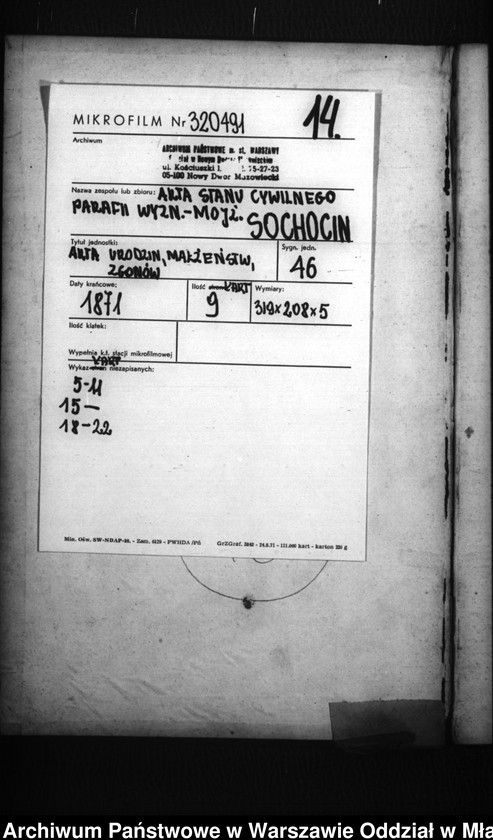 14.
MIKROFILM Nr 320491
Archiwum
ARCHIWUM PAŃSTWOWE m. st. WARSZAWY
w Nowym
ul. Kościuszki 75-27-23
05-100 Nowy Dwór Mazowiecki
Nazwa zespołu lub zbioru: AKTA STANU CYWILNEGO
PARAFII WYZN.-MOJŻ. SOCHOCIN
Tytuł jednostki:
AKTA URODZIN, MAŁŻEŃSTW,
ZGONÓW
Sygn. jedn.
46
Daty krańcowe:
1871
Ilość KART
9
Wymiary:
319x208x5
Ilość klatek:
Wypełnia k.f. stacji mikrofilmowej
KART
Wykaz niezapisanych:
5-11
15-
18-22
Min. Ośw. SW-NDAP-30. - Zam. 6129 - PWHDA/Pś
GrZGraf. 3843 - 24.8.71 - 151.000 kart - karton 220 g
Archiwum Państwowe w Warszawie Oddział w Mła